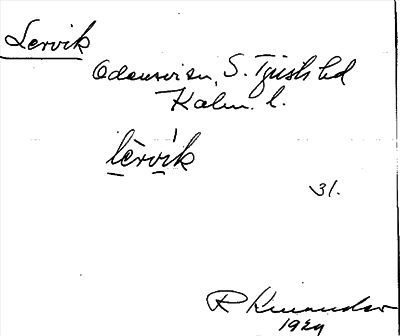 Lervik
Odensvi sn, S. Tjusts hd
Kalm. l.
lèrvik
31.
R Kinander
1929